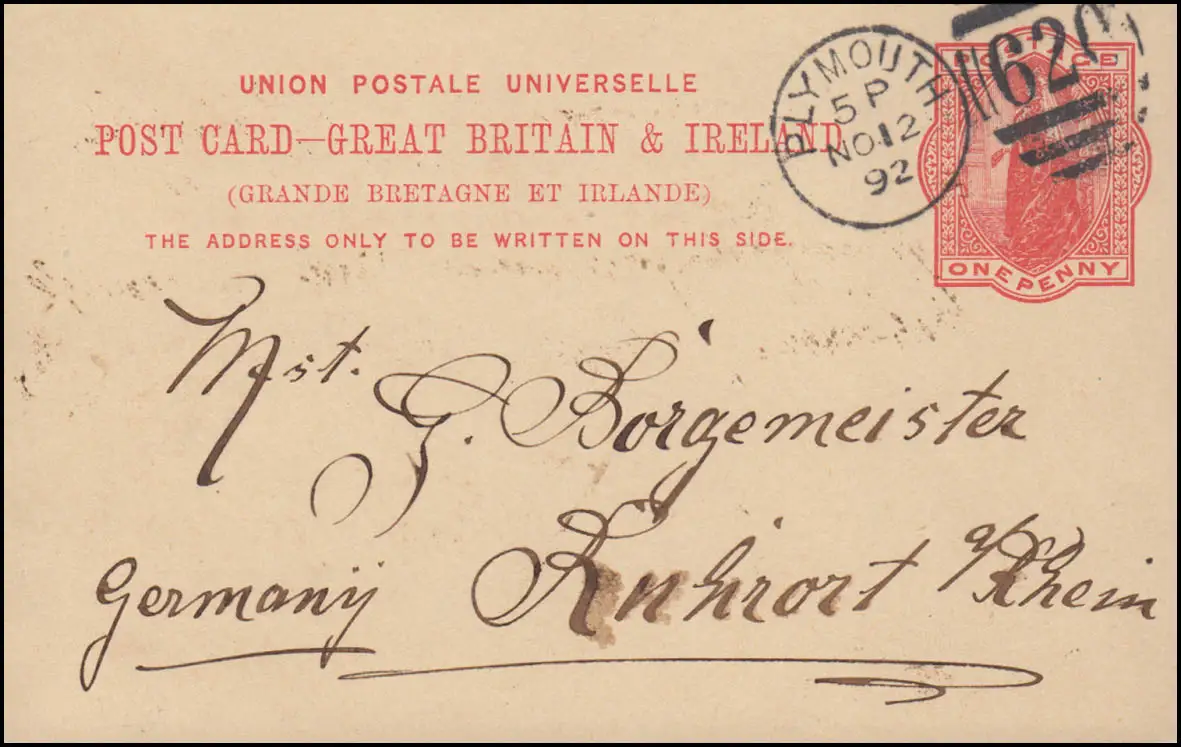 UNION POSTALE UNIVERSELLE
POST CARD—GREAT BRITAIN & IRELAND
(GRANDE BRETAGNE ET IRLANDE)
THE ADDRESS ONLY TO BE WRITTEN ON THIS SIDE.
PLYMOUTH
5 P
NO 12
92
620
POSTAGE
ONE PENNY
Mst.
G. Borgemeister
Ruhrort a/Rhein
Germany